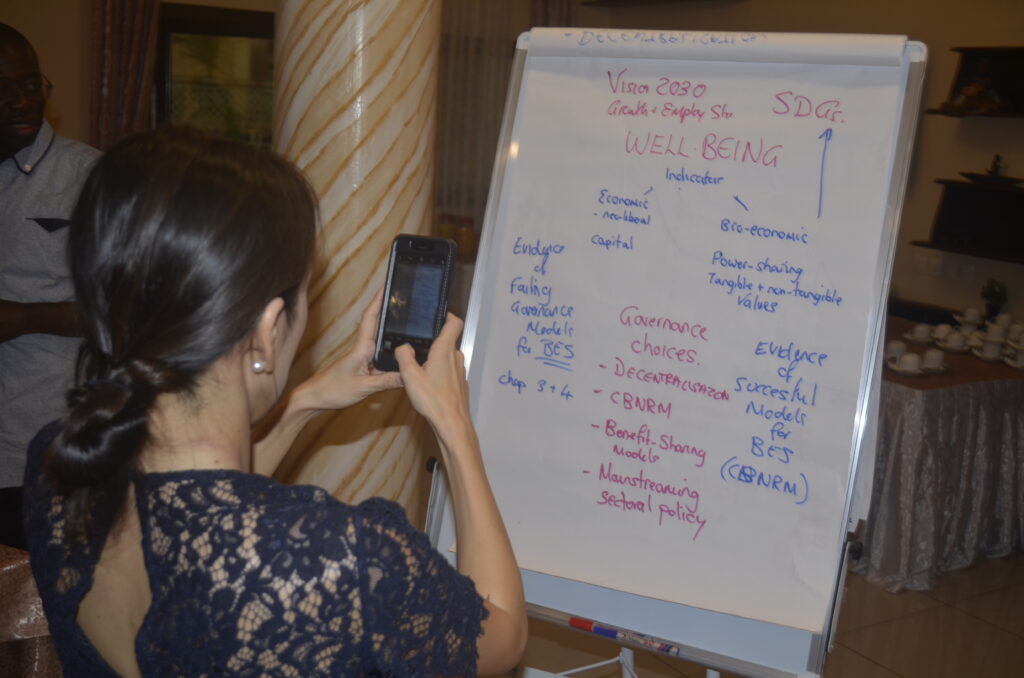 - DECENTRALISATION
Vision 2030
Growth + Employ Stra
SDGs.
WELL-BEING
Indicator
Economic
- neo-liberal
Capital
Bio-economic
Power-sharing
Tangible + non-tangible
Values
Evidence
of
Failing
Governance
Models
for BES
chap 3+4
Governance
choices.
- DECENTRALISATON
- CBNRM
- Benefit-Sharing
Models
- Mainstreaming
Sectoral policy
Evidence
of
Succesful
Models
for
BES
(CBNRM)